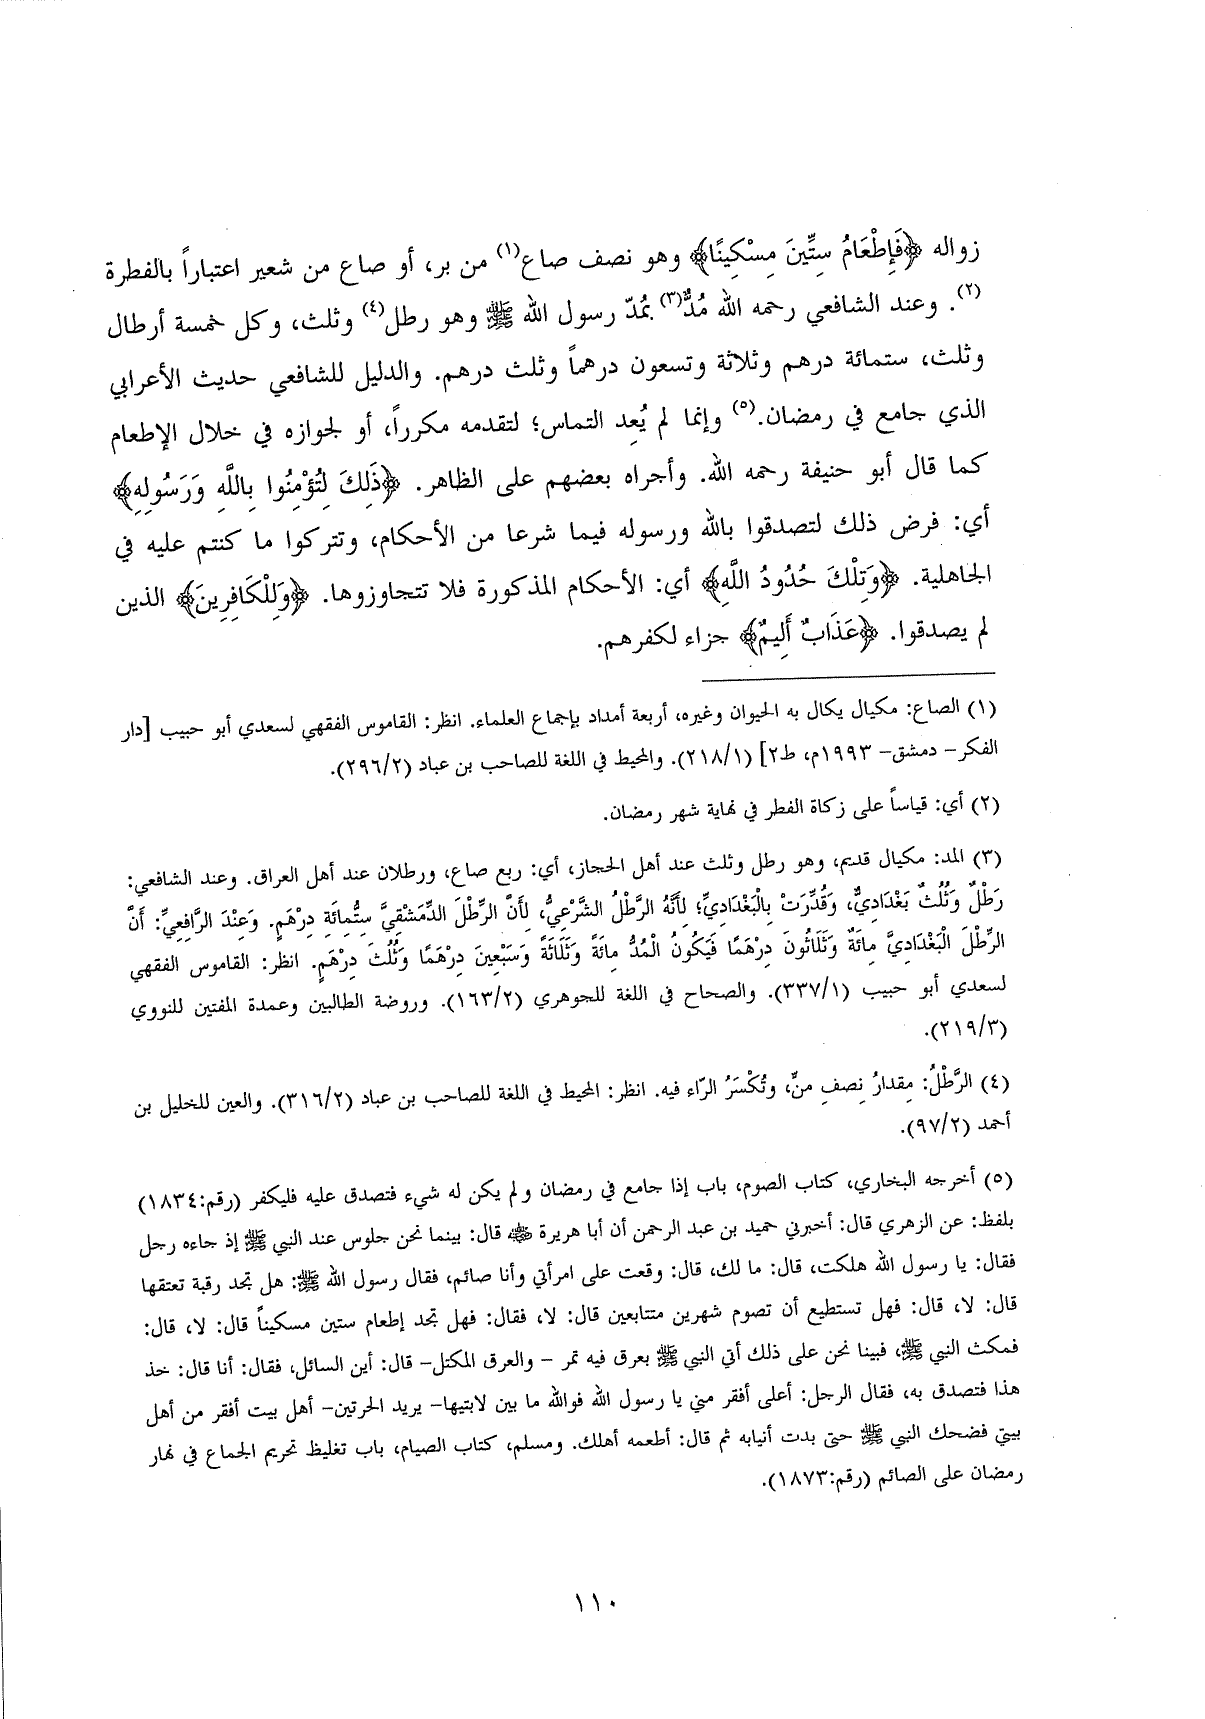 زواله ﴿فَإِطْعَامُ سِتِّينَ مِسْكِينًا﴾ وهو نصف صاع(١) من بر، أو صاع من شعير اعتباراً بالفطرة
(٢). وعند الشافعي رحمه الله مُدٌّ(٣) بمُدّ رسول الله ﷺ وهو رطل(٤) وثلث، وكل خمسة أرطال
وثلث، ستمائة درهم وثلاثة وتسعون درهماً وثلث درهم. والدليل للشافعي حديث الأعرابي
الذي جامع في رمضان.(٥) وإنما لم يُعِد التماس؛ لتقدمه مكرراً، أو لجوازه في خلال الإطعام
كما قال أبو حنيفة رحمه الله. وأجراه بعضهم على الظاهر. ﴿ذَلِكَ لِتُؤْمِنُوا بِاللَّهِ وَرَسُولِهِ﴾
أي: فرض ذلك لتصدقوا بالله ورسوله فيما شرعا من الأحكام، وتتركوا ما كنتم عليه في
الجاهلية. ﴿وَتِلْكَ حُدُودُ اللَّهِ﴾ أي: الأحكام المذكورة فلا تتجاوزوها. ﴿وَلِلْكَافِرِينَ﴾ الذين
لم يصدقوا. ﴿عَذَابٌ أَلِيمٌ﴾ جزاء لكفرهم.
(١) الصاع: مكيال يكال به الحيوان وغيره، أربعة أمداد بإجماع العلماء. انظر: القاموس الفقهي لسعدي أبو حبيب [دار
الفكر– دمشق– ١٩٩٣م، ط٢] (٢١٨/١). والمحيط في اللغة للصاحب بن عباد (٢٩٦/٢).
(٢) أي: قياساً على زكاة الفطر في نهاية شهر رمضان.
(٣) المد: مكيال قديم، وهو رطل وثلث عند أهل الحجاز، أي: ربع صاع، ورطلان عند أهل العراق. وعند الشافعي:
رَطْلٌ وَثُلُثٌ بَغْدَادِيٌّ، وَقُدِّرَتْ بِالْبَغْدَادِيِّ؛ لِأَنَّهُ الرَّطْلُ الشَّرْعِيُّ، لِأَنَّ الرِّطْلَ الدِّمَشْقِيَّ سِتُّمِائَةِ دِرْهَمٍ. وَعِنْدَ الرَّافِعِيِّ: أَنَّ
الرِّطْلَ الْبَغْدَادِيَّ مِائَةٌ وَثَلَاثُونَ دِرْهَمًا فَيَكُونُ الْمُدُّ مِائَةً وَثَلَاثَةً وَسَبْعِينَ دِرْهَمًا وَثُلُثَ دِرْهَمٍ. انظر: القاموس الفقهي
لسعدي أبو حبيب (٣٣٧/١). والصحاح في اللغة للجوهري (١٦٣/٢). وروضة الطالبين وعمدة المفتين للنووي
(٢١٩/٣).
(٤) الرَّطْلُ: مِقدارُ نِصفِ منٍّ، وتُكْسَرُ الرّاء فيه. انظر: المحيط في اللغة للصاحب بن عباد (٣١٦/٢). والعين للخليل بن
أحمد (٩٧/٢).
(٥) أخرجه البخاري، كتاب الصوم، باب إذا جامع في رمضان ولم يكن له شيء فتصدق عليه فليكفر (رقم:١٨٣٤)
بلفظ: عن الزهري قال: أخبرني حميد بن عبد الرحمن أن أبا هريرة ﷺ قال: بينما نحن جلوس عند النبي ﷺ إذ جاءه رجل
فقال: يا رسول الله هلكت، قال: ما لك، قال: وقعت على امرأتي وأنا صائم، فقال رسول الله ﷺ: هل تجد رقبة تعتقها
قال: لا، قال: فهل تستطيع أن تصوم شهرين متتابعين قال: لا، فقال: فهل تجد إطعام ستين مسكيناً قال: لا، قال:
فمكث النبي ﷺ، فبينا نحن على ذلك أتي النبي ﷺ بعرق فيه تمر – والعرق المكتل– قال: أين السائل، فقال: أنا قال: خذ
هذا فتصدق به، فقال الرجل: أعلى أفقر مني يا رسول الله فوالله ما بين لابتيها– يريد الحرتين– أهل بيت أفقر من أهل
بيتي فضحك النبي ﷺ حتى بدت أنيابه ثم قال: أطعمه أهلك. ومسلم، كتاب الصيام، باب تغليظ تحريم الجماع في نهار
رمضان على الصائم (رقم:١٨٧٣).
١١٠